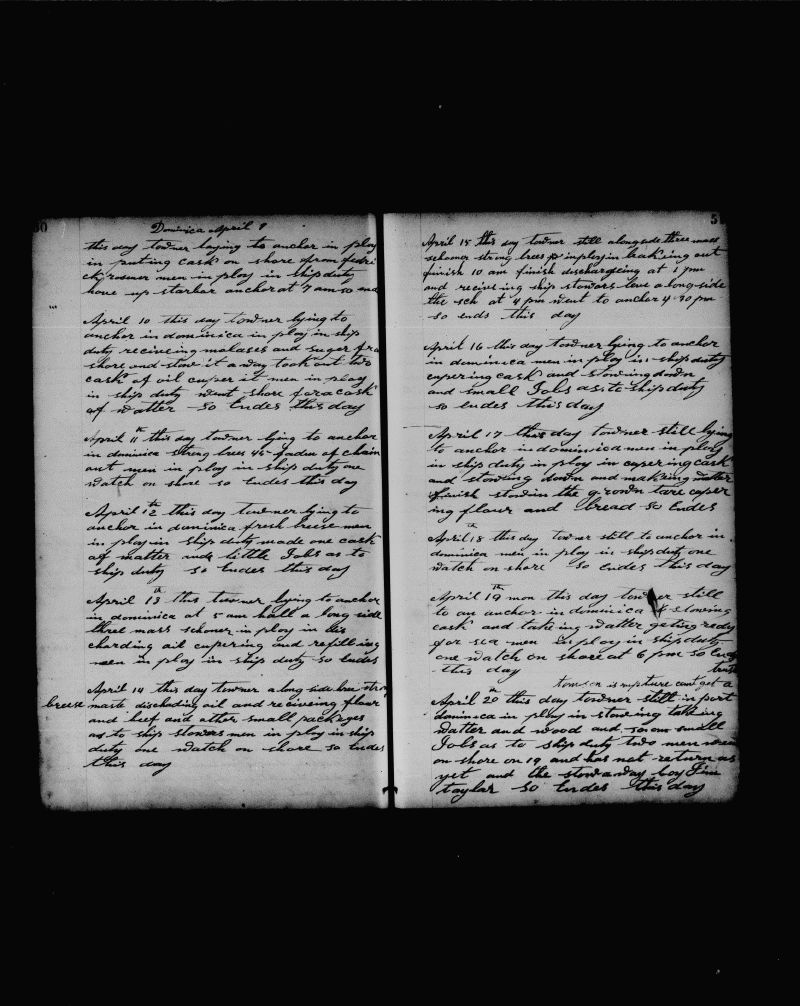 50
Dominica April 9
this day towner laying to ancher in ploy
in puting cask on shore from
men in ploy in ship duty
hove up starber anchor at 7 am so end
April 10 this day towner lying to
anchor in dominica in ploy in ship
duty receiveing malases and suger fro
shore and stow it a way took out two
cask of oil cuper it men in ploy
in ship duty went shore for a cask
of watter so Endes this day
April 11th this day towner lying to anchor
in dominica strong brees 45 faden of chain
out men in ploy in ship duty one
watch on shore so Endes this day
April 12th this day towner lying to
anchor in dominica fresh breese men
in ploy in ship duty made one cask
of matter little Jobs as to
ship duty so Endes this day
April 13th this towner lying to anchor
in dominica at 5 am hall a long side
three mass schoner in ploy in dis
charding oil cupering and refilling
men in ploy in ship duty so Endes
April 14 this day towner a long side hree stro
breese maste dischoding oil and receiveing flaur
and beef and other small packeges
as to ship stowers men in ploy in ship
duty one watch on shore so Endes
this day
5
April 15 this day towner still along side three mast
schoner strong brees in ploy in brakeing out
finish 10 am finish dischargeing at 1 pm
and receiveing ship stowers leve a long side
the sch at 4 pm went to ancher 4-30 pm
so ends this day
April 16 this day towner lying to anchor
in dominica men in ploy in ship duty
cupering cask and stowing down
and small Jobs as to ship duty
so Endes this day
April 17 this day towner still lying
to anchor in dominica men in ploy
in ship duty in ploy in cupering cask
and stowing down and making watter
finish stowin the grown tare cuper
ing flaur and bread so Endes
April 18th this day towner still to anchor in
dominica men in ploy in ship duty one
watch on shore so Endes this day
April 19th mon this day towner still
to an anchor in dominica stowing
cask and takeing watter geting redy
for sea men in ploy in ship duty
one watch on shore at 6 pm so Ends
this day
tomson is rupture cant get a
trust
April 20th this day towner still in port
dominica in ploy in stowing takeing
watter and wood and som small
Jobs as to ship duty two men
on shore on 19 and has not return as
yet and the stowaway boy Jim
taylar so Endes this day